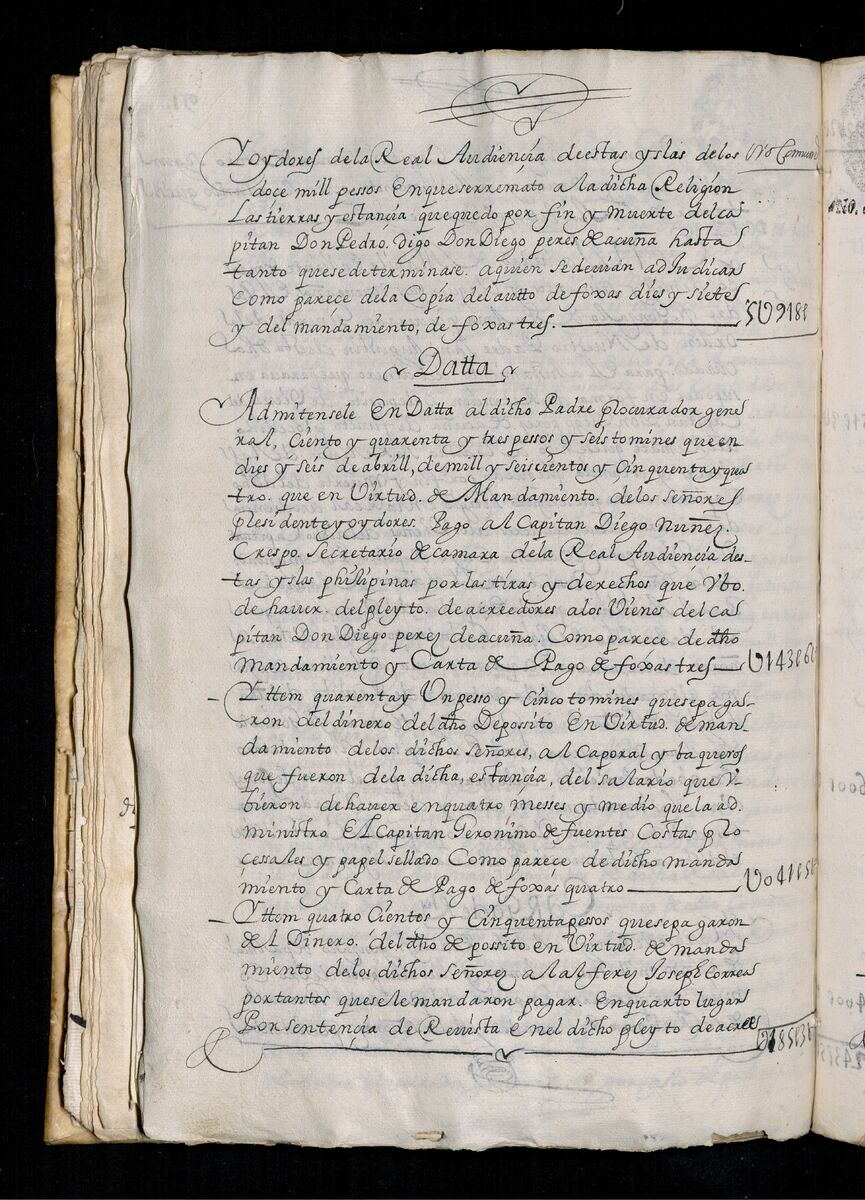 Y oydores de la Real Audiencia de estas yslas de los
doce mill pessos En que serremato a la dicha Religion
Las tierras y estancia que quedo por fin y muerte del ca
pitan Don Pedro, digo Don Diego peres de acuña hasta
tanto que se determinase. a quien se deuian adJudicar
Como parece de la Copia del autto de foxas dies y siete
y del mandamiento, de foxas tres.
Datta
Admitensele En Datta al dicho Padre procurador gene
ral, Ciento y quarenta y tres pessos y seis tomines que en
dies y seis de abrill, de mill y seiscientos y Cinquenta y qua
tro. que en Virtud. de Mandamiento. de los señores
presidente y oydores. Pago al Capitan Diego nuñez.
Crespo. Secretario de camara de la Real Audiencia des
tas yslas philipinas por las tiras y derechos que Vbo.
de haver. del pleyto. de acreedores a los Vienes del ca
pitan Don Diego perez de acuña. Como parece de dho
Mandamiento y Carta de Pago de foxas tres
Yttem quarenta y Un pesso y Cinco tomines que se paga
ron del dinero del dho Depossito En Virtud. de man
damiento de los dichos señores, al Caporal y baqueros
que fueron de la dicha, estancia, del salario que V
bieron de haver en quatro messes y medio que la ad
ministro El Capitan Geronimo de fuentes Costas pro
cessales y papel sellado Como parece de dicho manda
miento y Carta de Pago de foxas quatro
Yttem quatro Cientos y Cinquenta pessos que se pagaron
del Dinero. del dho depossito en Virtud. de manda
miento de los dichos señores al alferez Joseph Correa
por tantos que se le mandaron pagar. En quarto lugar
Por sentencia de Revista En el dicho pleyto de acree